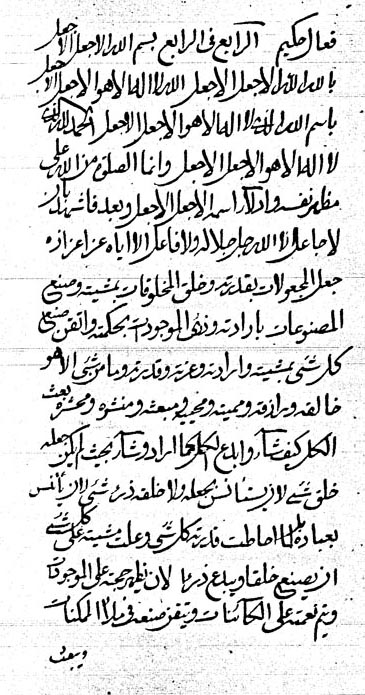 فعال حكيم الرابع في الرابع بسم الله الاجعل الاجعل
بالله الله الاجعل الاجعل الله لا اله الا هو الاجعل الاجعل
باسم الله الذي لا اله الا هو الاجعل الاجعل الحمد لله الذي
لا اله الا هو الاجعل الاجعل وانما الصلوة من الله على
مظهر نفسه و اسمه الاجعل الاجعل وبعد فاشهد بان
لا جاعل الا الله جل جلاله ولا فاعل الا اياه عز اعزازه
جعل المجعولات بقدرته وخلق المخلوقات بمشيته وصنع
المصنوعات بارادته الموجودات بحكمته واتقن صنع
كل شئ بمشيته وارادته وعزته وقدرته وما من شئ الا هو
خالقه ورازقه ومميته ومحييه ومبعثه ومنشره ومحشره بعث
الكل كيف شاء وابدع الكل كما اراد وشاء بحيث لم يكن جعله
خلق شئ لان يستانس بجعله ولا خلقه ذرء شئ لان يانس
بعباده احاطت قدرته كل شئ وعلت مشيته على كل شئ
ان يصنع خلقا ويبدع ذرءا لان يظهر حجته على الموجودات
ويتم نعمته على الكائنات ويتقن صنعه في الممكنات
ويبعث